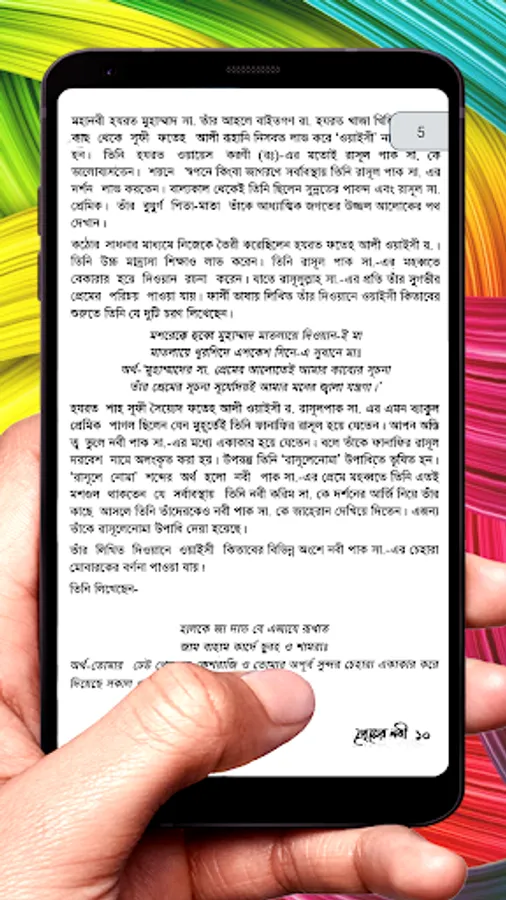 মহানবী হযরত মুহাম্মাদ সা. তাঁর আহলে বাইতগণ রা. হযরত খাজা
5
কাছ থেকে সূফী ফতেহ আলী রূহানি নিসবত লাভ করে ‘ওয়াইসী’
হন। তিনি হযরত ওয়ায়েস করণী (রঃ)-এর মতোই রাসূল পাক সা. কে
ভালোবাসতেন। শয়নে স্বপনে কিংবা জাগরণে সর্বাবস্থায় তিনি রাসূল পাক সা. এর
দর্শন লাভ করতেন। বাল্যকাল থেকেই তিনি ছিলেন সুন্নতের পাবন্দ এবং রাসূল সা.
প্রেমিক। তাঁর বুযুর্গ পিতা-মাতা তাঁকে আধ্যাত্মিক জগতের উজ্জল আলোকের পথ
দেখান।
কঠোর সাধনার মাধ্যমে নিজেকে তৈরী করেছিলেন হযরত ফতেহ আলী ওয়াইসী র.।
তিনি উচ্চ মাদ্রাসা শিক্ষাও লাভ করেন। তিনি রাসূল পাক সা.-এর মহব্বতে
বেকারার হয়ে দিওয়ান রচনা করেন। যাতে রাসূলুল্লাহ সা.-এর প্রতি তাঁর সুগভীর
প্রেমের পরিচয় পাওয়া যায়। ফার্সী ভাষায় লিখিত তাঁর দিওয়ানে ওয়াইসী কিতাবের
শুরুতে তিনি যে দুটি চরণ লিখেছেন।
মশরেকে হুব্বে মুহাম্মাদ মাতলায়ে দিওয়ান-ই মা
মাতলায়ে খুরশিদে এশকেশ সিনে-এ সুবানে মাঃ
অর্থ-‘মুহাম্মাদের সা. প্রেমের আলোতেই আমার কাব্যের সূচনা
তাঁর প্রেমের সূচনা সূর্যোদয়ই আমার মনের জ্বালা যন্ত্রণা।’
হযরত শাহ সূফী সৈয়্যেদ ফতেহ আলী ওয়াইসী র. রাসূলপাক সা. এর এমন ব্যাকুল
প্রেমিক পাগল ছিলেন যেন মুহূর্তেই তিনি ফানাফির রাসূল হয়ে যেতেন। আপন অস্তি
ত্ব ভুলে নবী পাক সা.-এর মধ্যে একাকার হয়ে যেতেন। বলে তাঁকে ফানাফির রাসূল
দরবেশ নামে অলংকৃত করা হয়। উপরন্তু তিনি ‘রাসূলেনোমা’ উপাধিতে ভূষিত হন।
‘রাসূলে নোমা’ শব্দের অর্থ হলো নবী পাক সা.-এর প্রেমে মহব্বতে তিনি এতই
মশগুল থাকতেন যে সর্বাবস্থায় তিনি নবী করিম সা. কে দর্শনের আর্জি নিয়ে তাঁর
কাছে আসলে তিনি তাঁদেরকেও নবী পাক সা. কে জাহেরান দেখিয়ে দিতেন। এজন্য
তাঁকে রাসূলেনোমা উপাধি দেয়া হয়েছে।
তাঁর লিখিত দিওয়ানে ওয়াইসী কিতাবের বিভিন্ন অংশে নবী পাক সা.-এর চেহারা
মোবারকের বর্ণনা পাওয়া যায়।
তিনি লিখেছেন-
হালকে জা দাত বে এজাযে রুখাত
জাম বাহাম কার্দে ছুবহ ও শামরাঃ
অর্থ-তোমার ঢেউ ও তোমার অপূর্ব সুন্দর চেহারা একাকার করে
দিয়েছে সকাল
প্রেমের নবী ১০